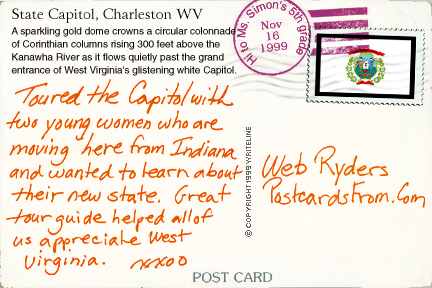 State Capitol, Charleston WV
A sparkling gold dome crowns a circular colonnade
of Corinthian columns rising 300 feet above the
Kanawha River as it flows quietly past the grand
entrance of West Virginia's glistening white Capitol.
Hi to Ms. Simon's 5th grade
Nov
16
1999
Toured the Capitol with
two young women who are
moving here from Indiana
and wanted to learn about
their new state. Great
tour guide helped all of
us appreciate West
Virginia. xxoo
© COPYRIGHT 1999 WRITELINE
Web Ryders
PostcardsFrom.Com
POST CARD